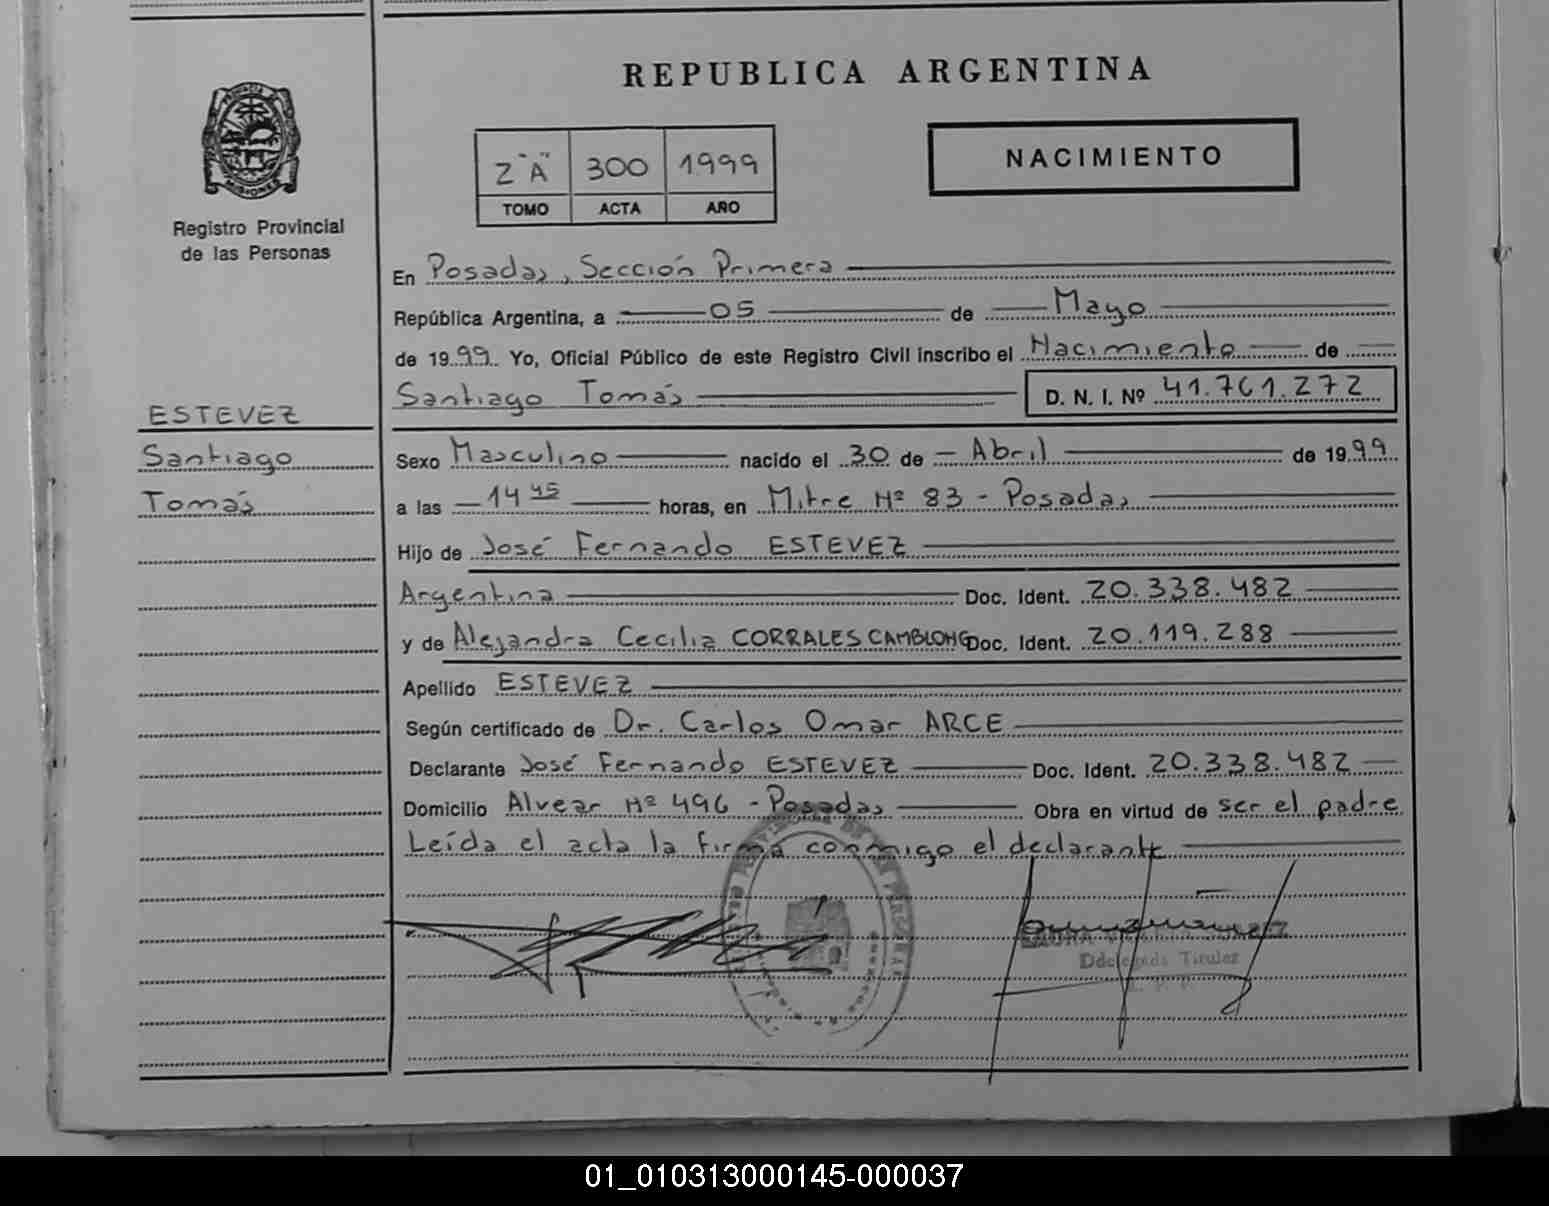 REPUBLICA ARGENTINA
PROVINCIA DE
MISIONES
Registro Provincial
de las Personas
2 "A" 300 1999
TOMO ACTA AÑO
NACIMIENTO
En Posadas, Sección Primera
República Argentina, a 05 de Mayo
de 1999. Yo, Oficial Público de este Registro Civil inscribo el Nacimiento de
Santiago Tomás D. N. I. Nº 41.761.272
ESTEVEZ
Santiago
Tomás
Sexo Masculino nacido el 30 de Abril de 1999
a las 14 45 horas, en Mitre Nº 83 - Posadas
Hijo de José Fernando ESTEVEZ
Argentina Doc. Ident. 20.338.482
y de Alejandra Cecilia CORRALES CAMBLONG Doc. Ident. 20.119.288
Apellido ESTEVEZ
Según certificado de Dr. Carlos Omar ARCE
Declarante José Fernando ESTEVEZ Doc. Ident. 20.338.482
Domicilio Alvear Nº 496 - Posadas Obra en virtud de ser el padre
Leída el acta la firma conmigo el declarante
LAURA
Delegada Titular
01_010313000145-000037